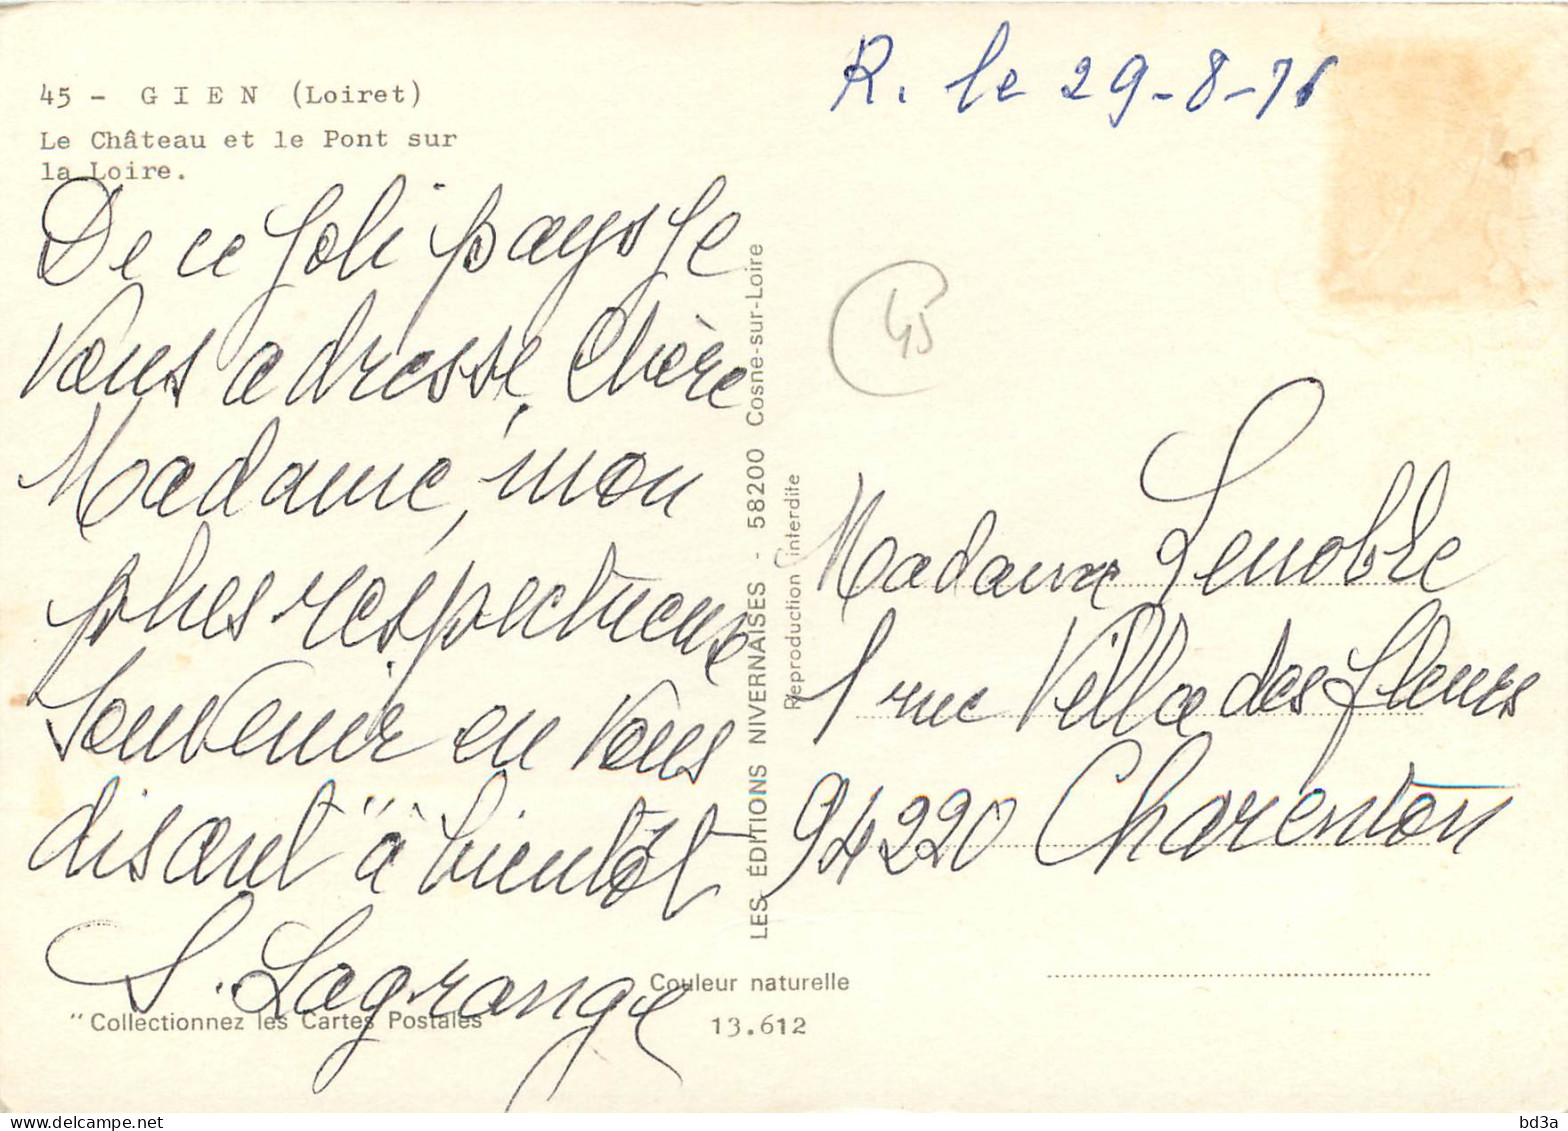 45 - GIEN (Loiret)
Le Château et le Pont sur
la Loire.
R. le 29-8-76
De ce Joli pays Je
Vous adresse, Chère
Madame, mon
plus respectueux
Souvenir en Vous
disant "à bientôt
S. Lagrange
"Collectionnez les Cartes Postales
Couleur naturelle
13.612
LES ÉDITIONS NIVERNAISES - 58200 Cosne-sur-Loire
Reproduction interdite
45
Madame Lenoble
1 rue Villa des fleurs
94220 Charenton
bd3a